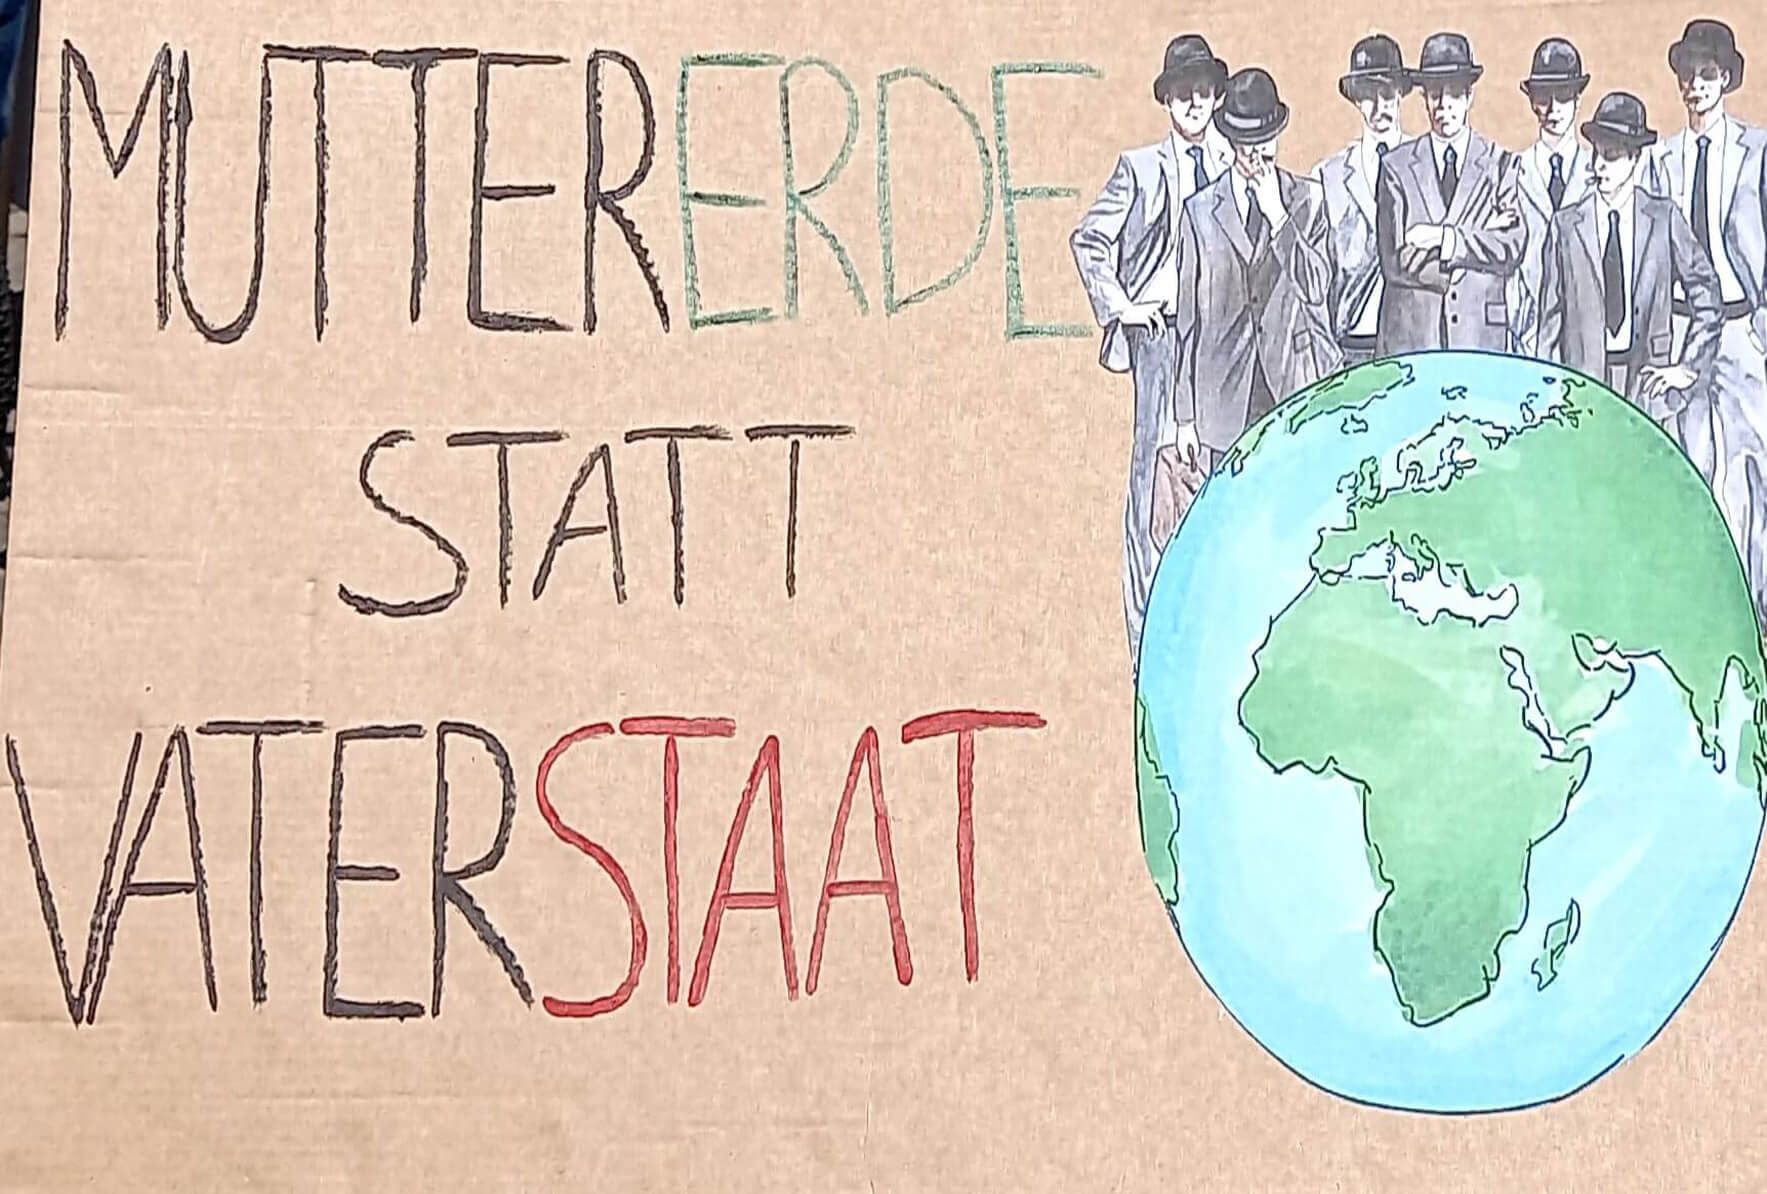 MUTTERERDE
STATT
VATERSTAAT